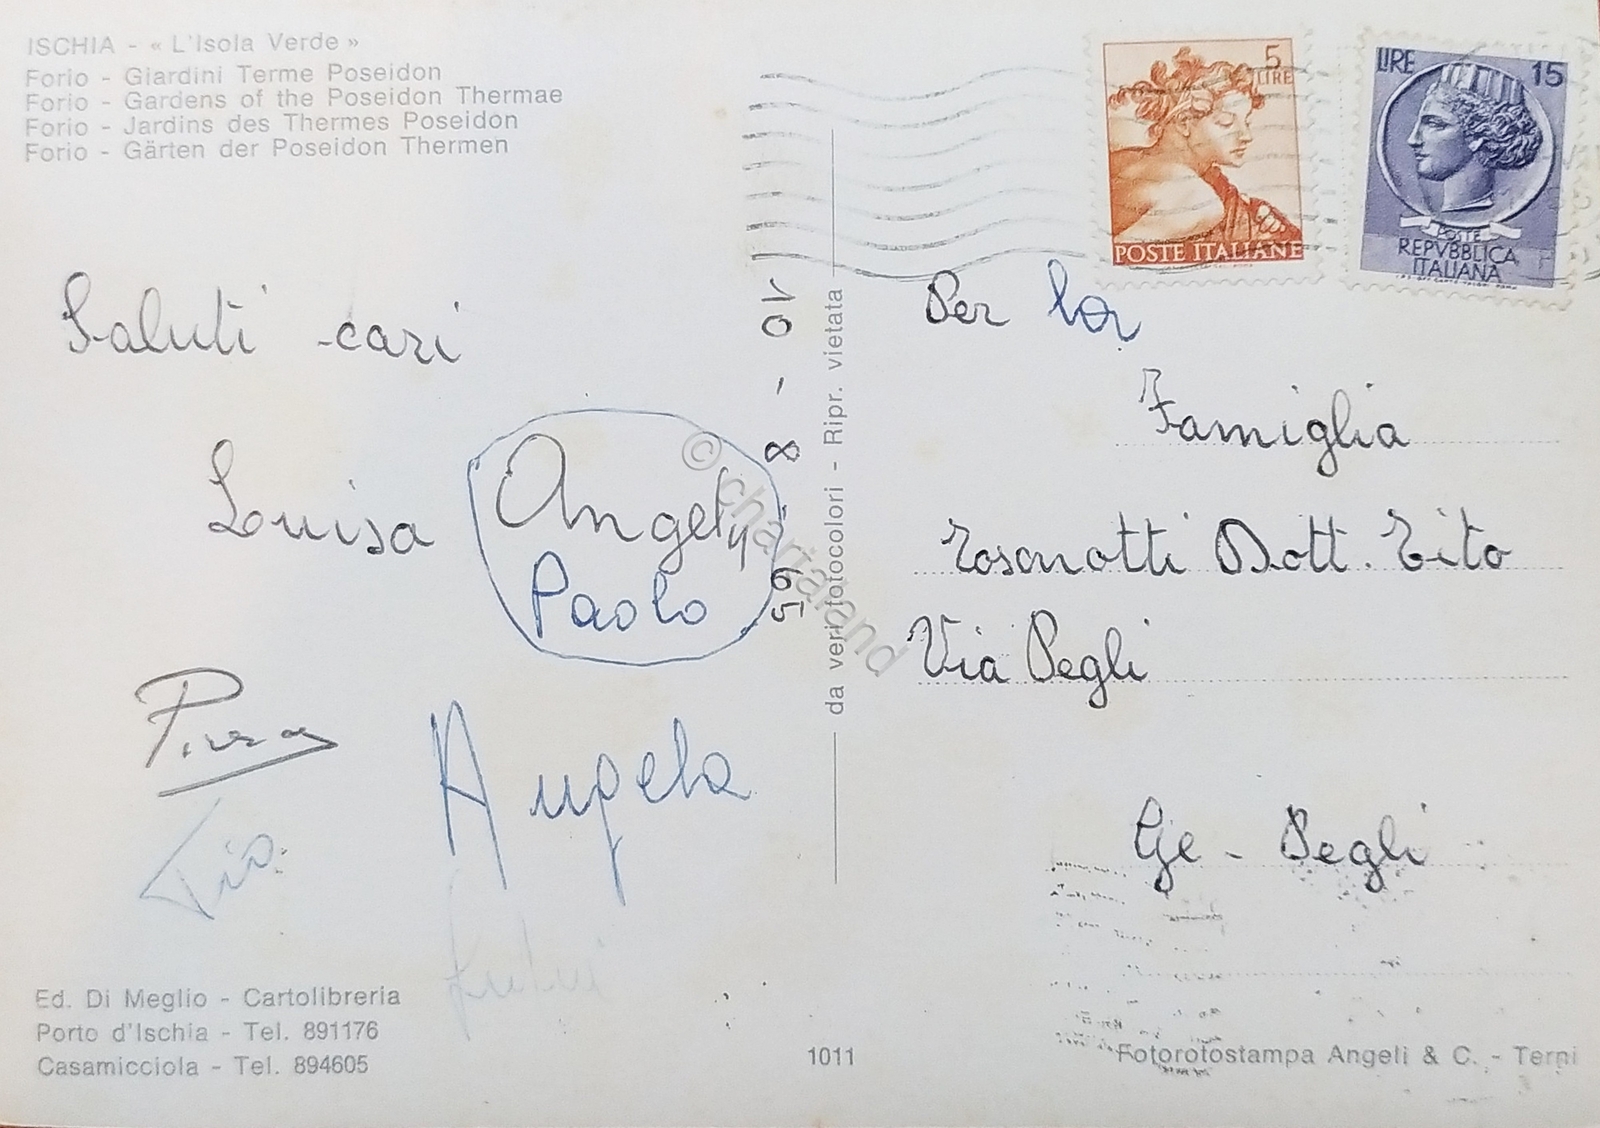 ISCHIA - « L'Isola Verde »
Forio - Giardini Terme Poseidon
Forio - Gardens of the Poseidon Thermae
Forio - Jardins des Thermes Poseidon
Forio - Gärten der Poseidon Thermen
5
LIRE
POSTE ITALIANE
LIRE 15
POSTE
REPVBBLICA
ITALIANA
Saluti cari
Luisa
Angely
Paolo
Angela
Ed. Di Meglio - Cartolibreria
Porto d'Ischia - Tel. 891176
Casamicciola - Tel. 894605
10 - 8 - 65
da veri fotocolori - Ripr. vietata
© chartaland
Per lor
Famiglia
Dott. Tito
Via Pegli
Ge - Pegli
1011
Fotorotostampa Angeli & C. - Terni